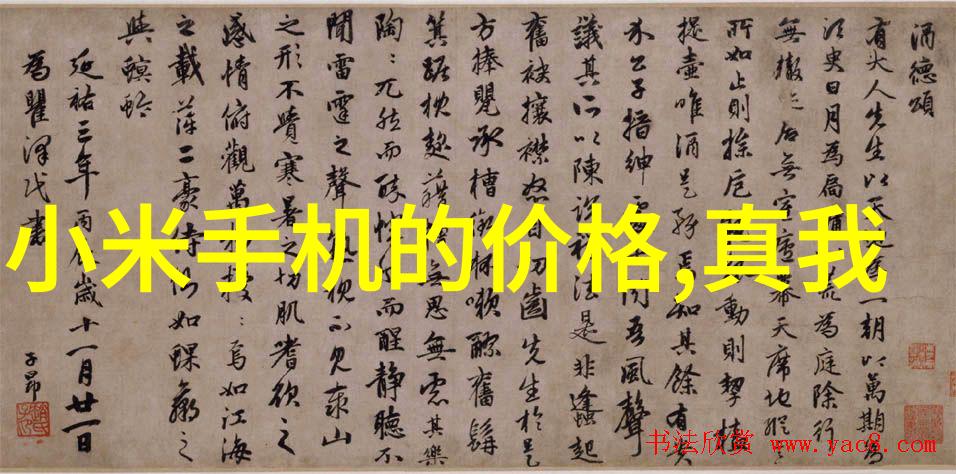 酒德頌
有大人先生以天一朝以萬期為
須臾日月為扃牖荒為庭除行
無轍迹居無室廬幕天席地縱意
所如止則操卮動則挈榼
提壺唯酒是務焉知其餘有貴
介公子搢紳處聞吾風聲
議其所以陳說禮法是非鋒起
奮袂攘襟怒目切齒先生於是
方捧甖承槽銜杯漱醪奮髯
箕踞枕麴藉糟無思無慮其樂
陶:兀然而醉恍爾而醒靜聽不
聞雷霆之聲熟視不見泰山
之形不覺寒暑之切肌嗜欲之
感情俯觀萬物擾:焉如江海
之載萍二豪侍側如蜾蠃之
與螟蛉
延祐三年丙辰歲十一月廿一日
為瞿澤民書
子昂
小米手机的价格,真我
书法欣赏 www.yac8.com